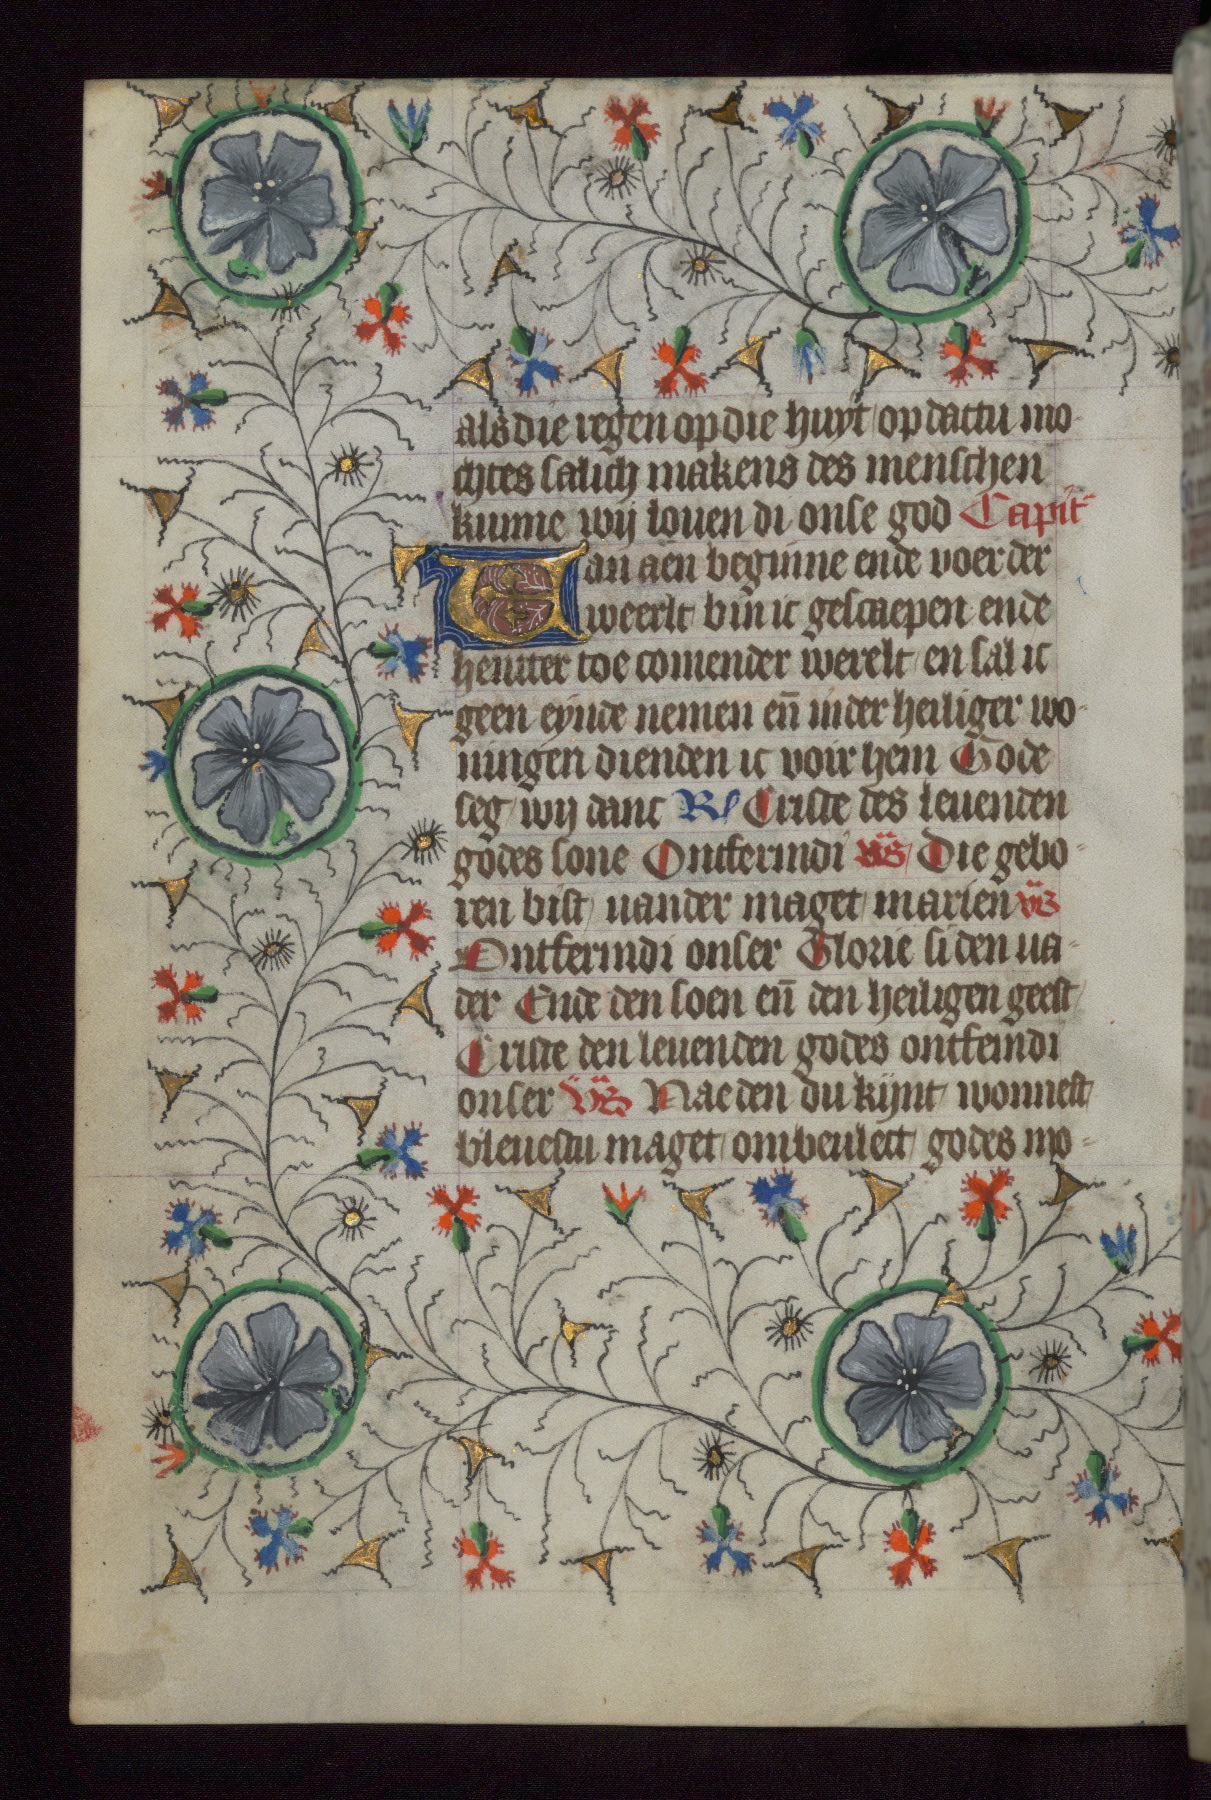 als die regen op die huyt op dattu mo-
chtes salich makens des menschen
kunne wij louen di onse god Capit
Van aen beginne ende voer der
weerlt bin ic gescaepen ende
heniter toe comender werelt en sal ic
geen eynde nemen en̄ inder heiliger wo-
ningen dienden ic voir hem Gode
seg wij danc R Criste des leuenden
godes sone Ontfermdi vs̄ Die gebo-
ren bist vander maget marien vs̄
Ontfermdi onser Glorie si den va-
der Ende den soen en̄ den heiligen geest
Criste den leuenden godes ontfemdi
onser vs̄ Nae den du kijnt wonnest
bleuestu maget ombeulect godes mo-